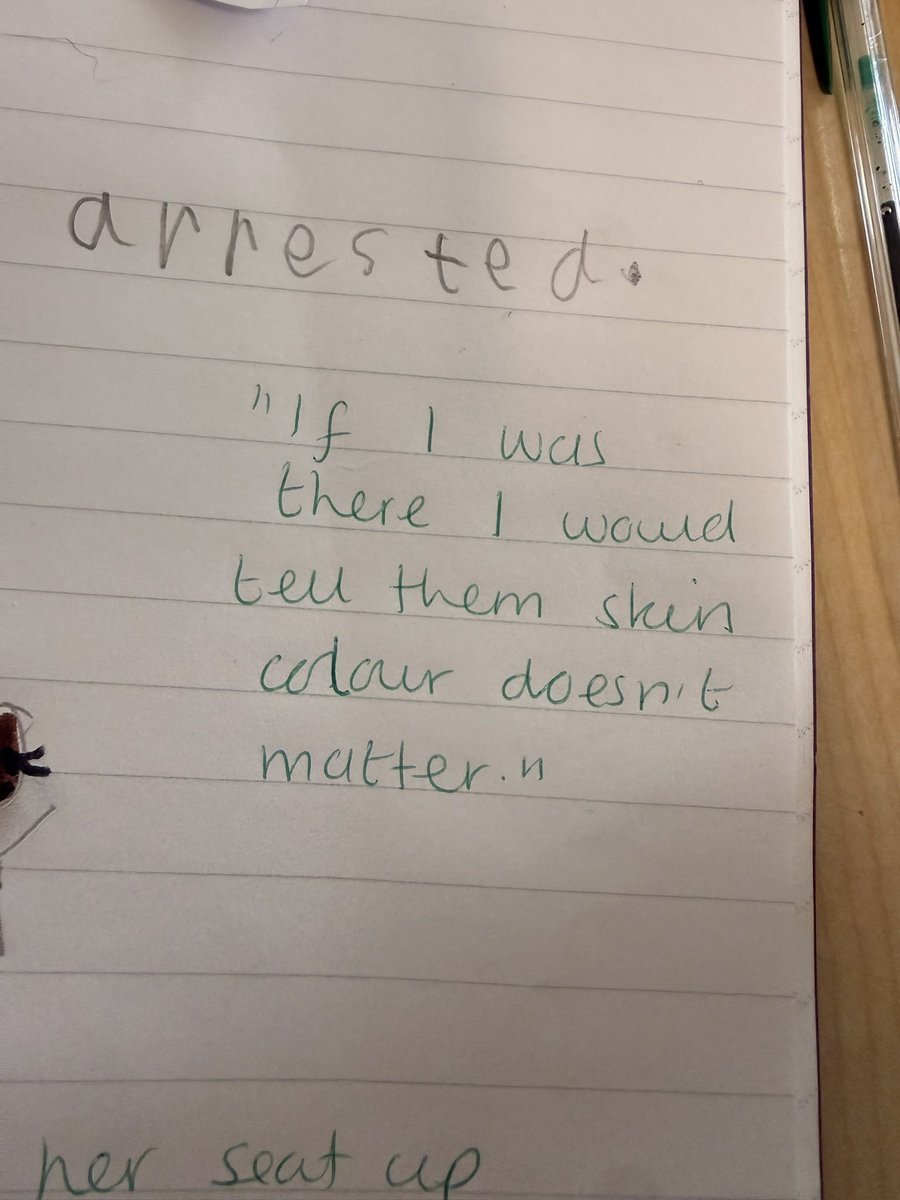 arrested.
"If I was
there I would
tell them skin
colour doesn't
matter."
her seat up